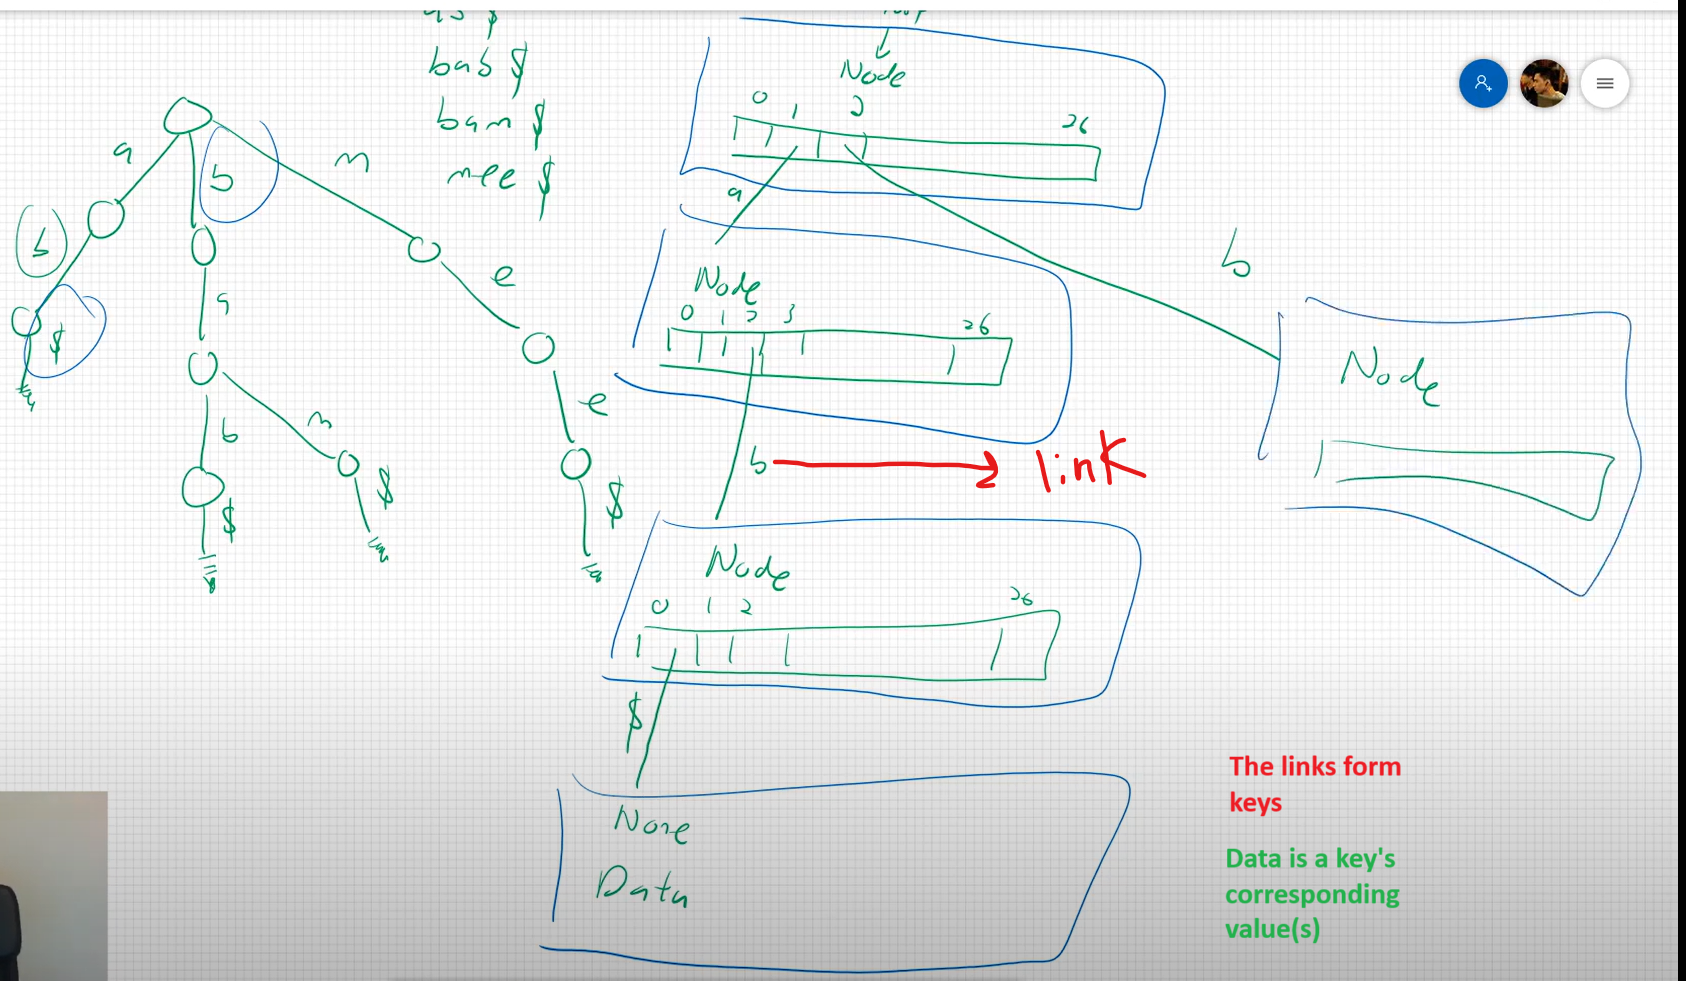 bab $
bam $
mee $
a
b
m
b
$
a
e
b
m
e
$
$
$
Node
0 1 2 26
a
b
Node
0 1 2 3 26
b
link
Node
Node
0 1 2 26
$
None
Data
The links form
keys
Data is a key's
corresponding
value(s)